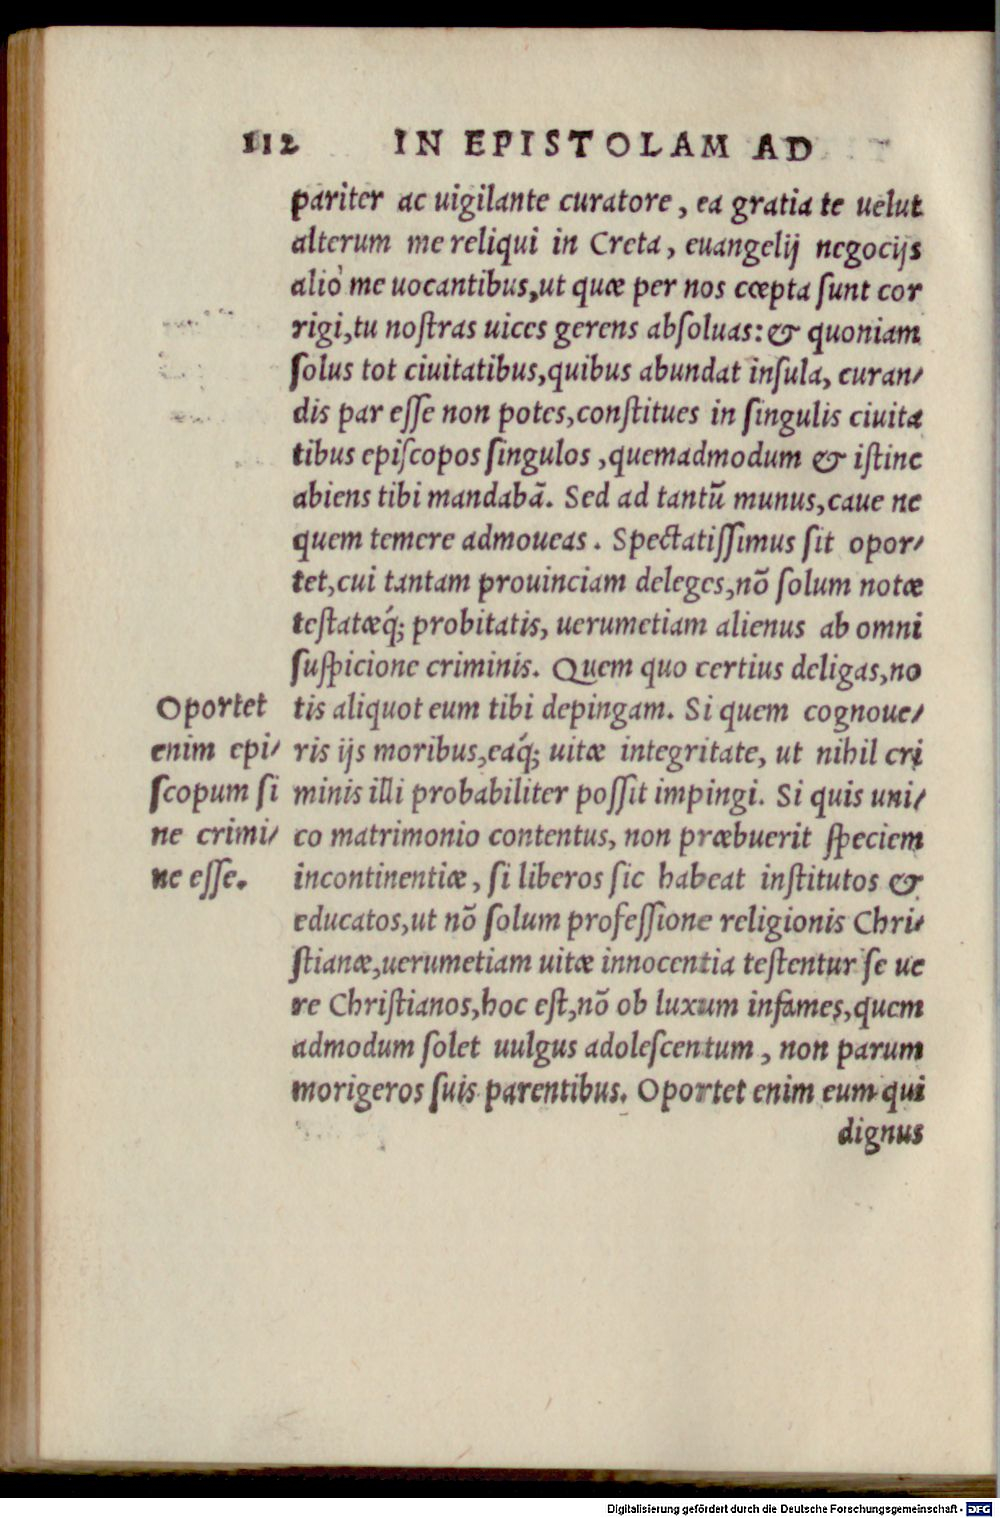 112 IN EPISTOLAM AD
pariter ac uigilante curatore, ea gratia te uelut
alterum me reliqui in Creta, euangelij negocijs
aliò me uocantibus, ut quæ per nos cœpta sunt cor
rigi, tu noſtras uices gerens abſoluas: & quoniam
ſolus tot ciuitatibus, quibus abundat inſula, curan/
dis par eſſe non potes, conſtitues in ſingulis ciuita
tibus epiſcopos ſingulos, quemadmodum & iſtinc
abiens tibi mandabã. Sed ad tantũ munus, caue ne
quem temere admoueas. Spectatiſſimus ſit opor/
tet, cui tantam prouinciam deleges, nõ ſolum notæ
teſtatæq́; probitatis, uerumetiam alienus ab omni
ſuſpicione criminis. Quem quo certius deligas, no
tis aliquot eum tibi depingam. Si quem cognoue/
ris ijs moribus, eaq́; uitæ integritate, ut nihil cri
minis illi probabiliter poſſit impingi. Si quis uni/
co matrimonio contentus, non præbuerit ſpeciem
incontinentiæ, ſi liberos ſic habeat inſtitutos &
educatos, ut nõ ſolum profeſſione religionis Chri/
ſtianæ, uerumetiam uitæ innocentia teſtentur ſe ue
re Chriſtianos, hoc eſt, nõ ob luxum infames, quem
admodum ſolet uulgus adoleſcentum, non parum
morigeros ſuis parentibus. Oportet enim eum qui
dignus
Oportet
enim epi/
ſcopum ſi
ne crimi/
ne eſſe.
Digitalisierung gefördert durch die Deutsche Forschungsgemeinschaft - DFG